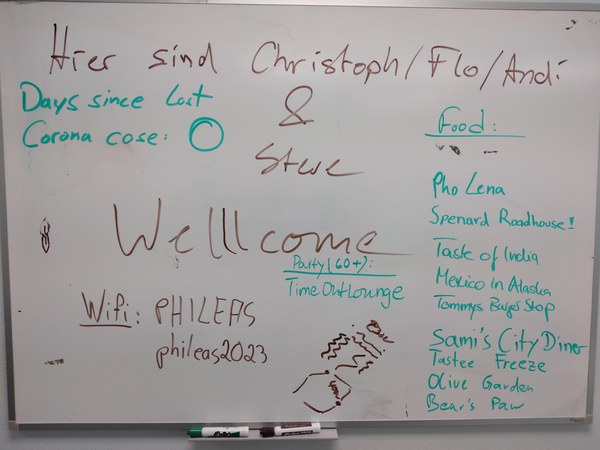 Hier sind Christoph/Flo/Andi
&
Steve
Days since last
Corona case: 0
Welllcome
Wifi: PHILEAS
phileas2023
Party (60+):
Time Out Lounge
Food:
Pho Lena
Spenard Roadhouse!
Taste of India
Mexico in Alaska
Sami's City Diner
Tastee Freeze
Olive Garden
Bear's Paw